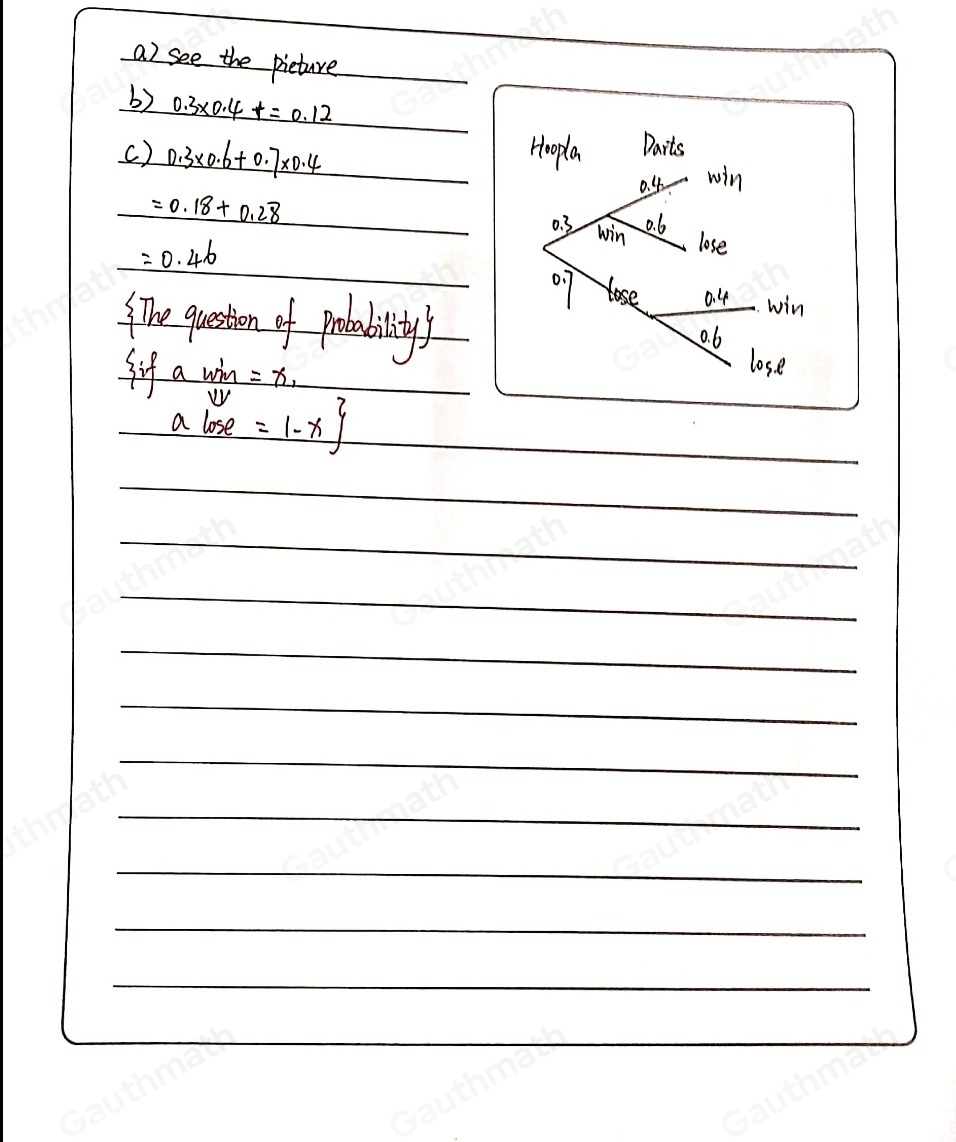 a) see the picture
b) 0.3×0.4 += 0.12
c) 0.3×0.6+0.7×0.4
=0.18+0.28
=0.46
{The question of probability}
{if a win = x,
⇓
a lose = 1-x}
Hoopla Darts
0.4 win
0.3 win 0.6 lose
0.7 lose 0.4 win
0.6 lose
Gauthmath